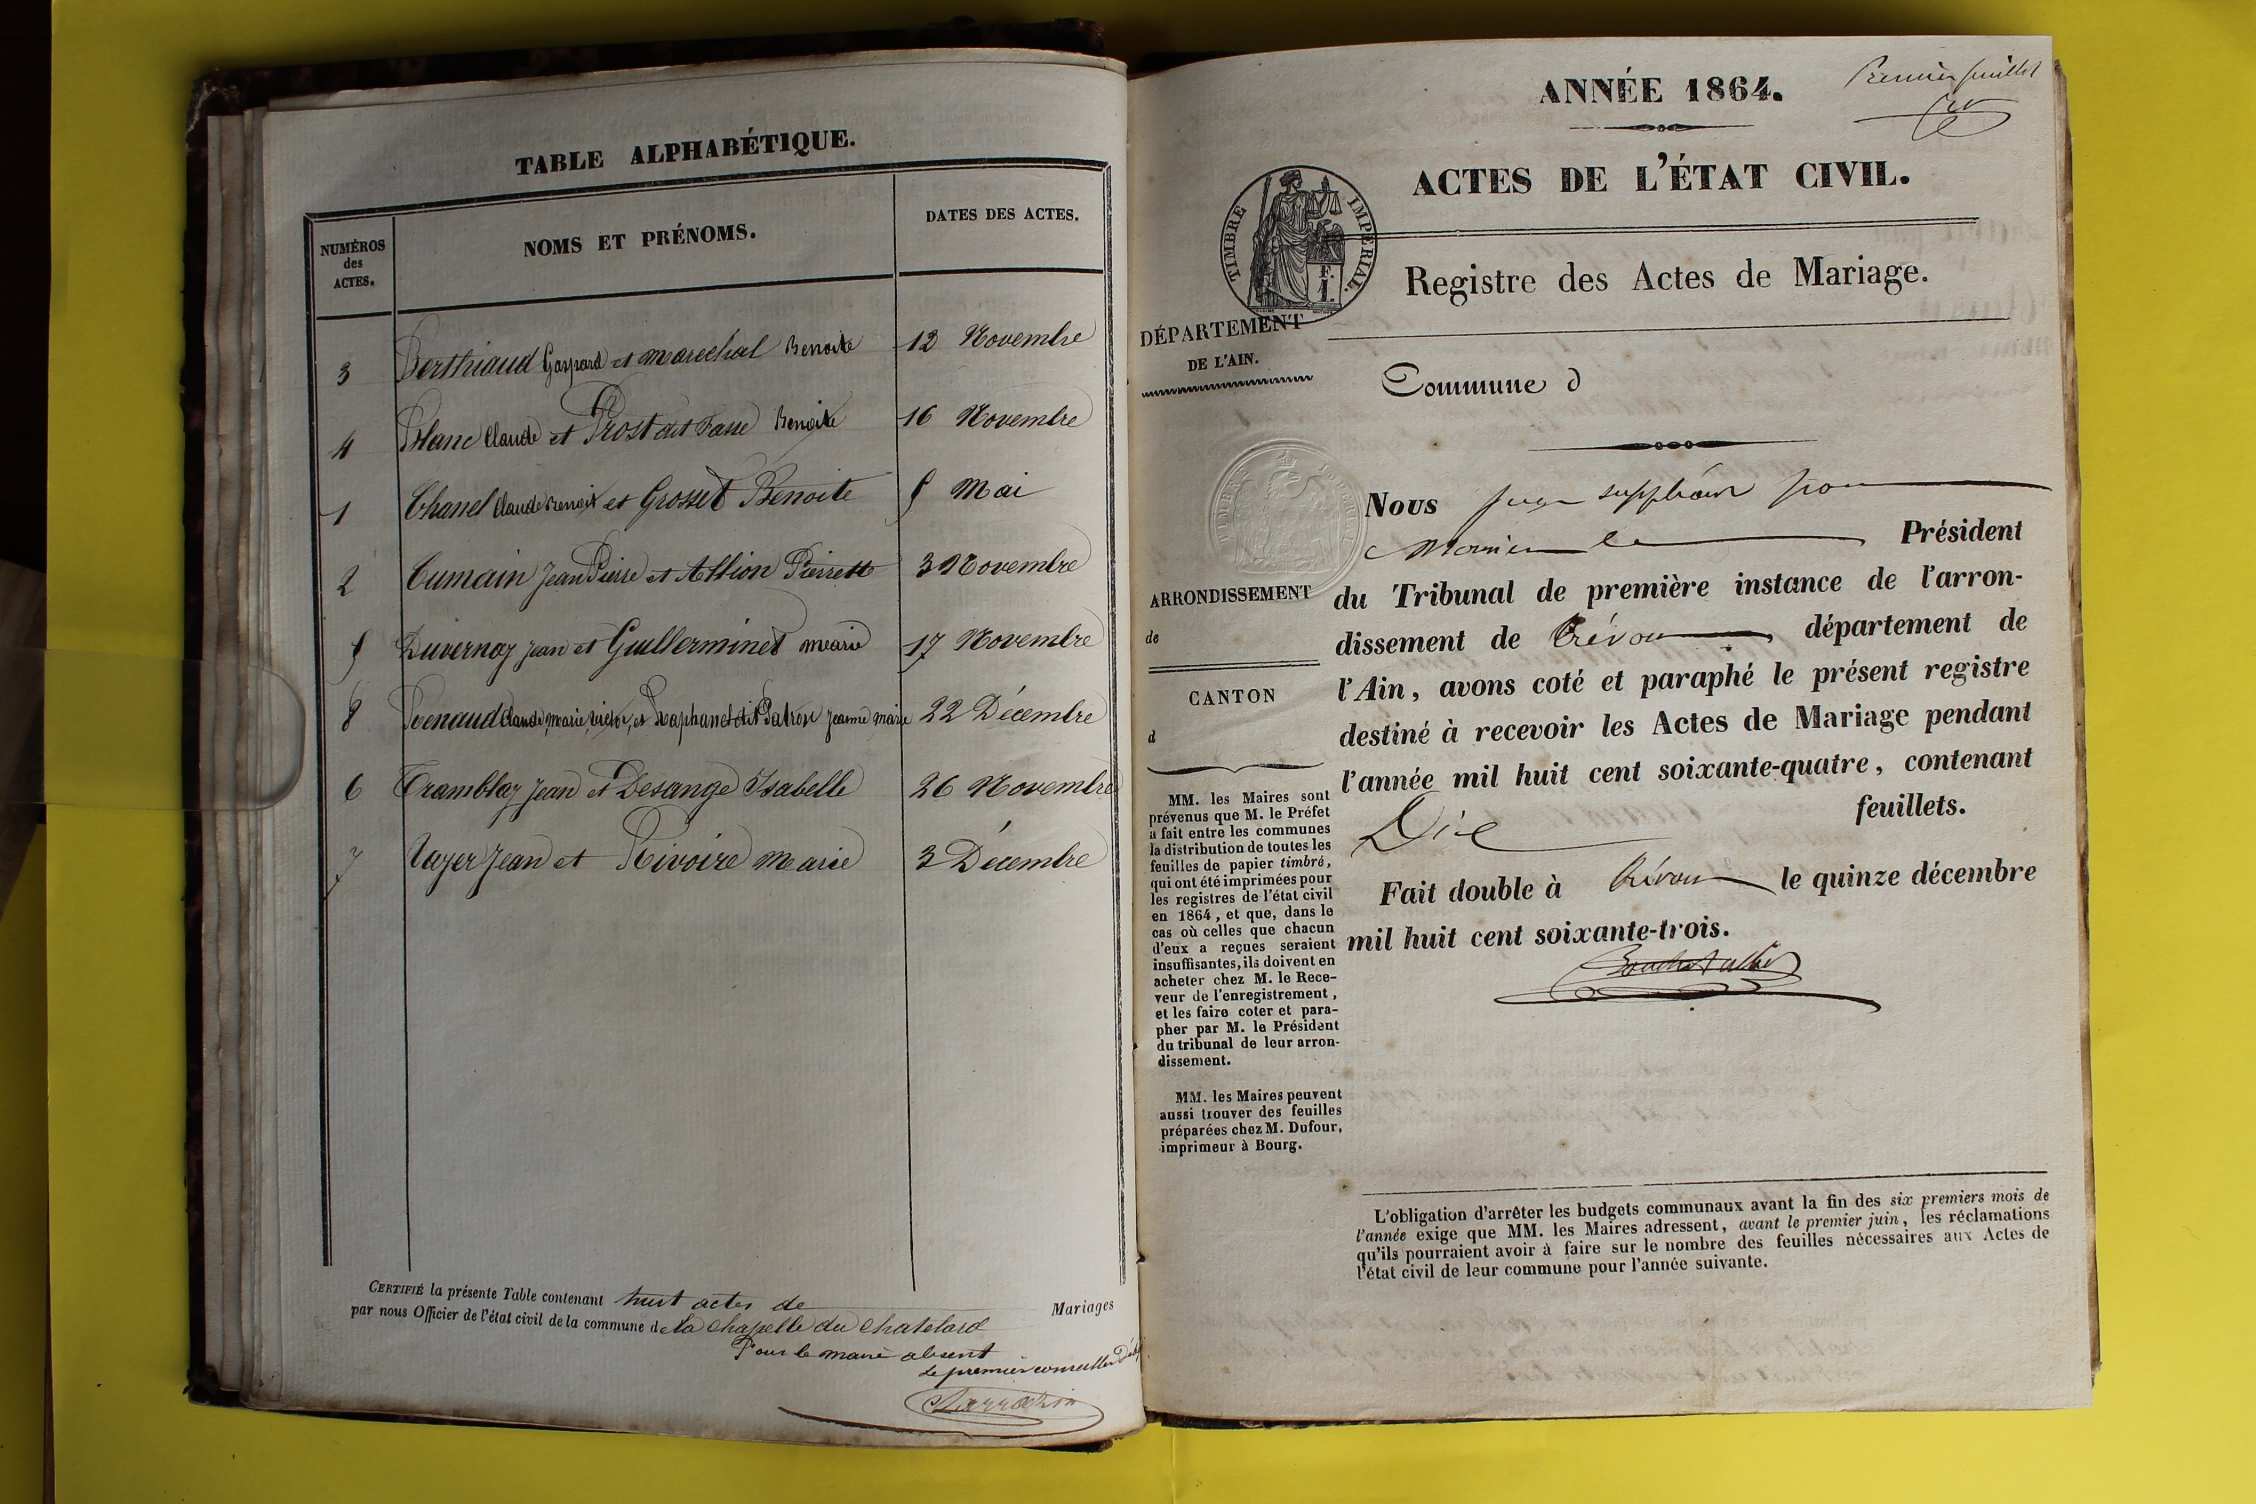 TABLE ALPHABÉTIQUE.
NUMÉROS des ACTES.
NOMS ET PRÉNOMS.
DATES DES ACTES.
3 Berthiaud Gaspard et Marechal Benoite 12 Novembre
4 Blanc Claude et Prost dit Passe Benoite 16 Novembre
1 Chanel Claude Benoit et Grosset Benoite 5 Mai
2 Cumain Jean Pierre et Allion Pierrette 3 Novembre
5 Duvernay Jean et Guillerminet Marie 17 Novembre
8 Renaud Claude, Marie, Victor, et Raphanel dit Patron Jeanne Marie 22 Décembre
6 Tramblay Jean et Desange Isabelle 26 Novembre
7 Vayer Jean et Rivoire Marie 3 Décembre
CERTIFIÉ la présente Table contenant huit actes de Mariages
par nous Officier de l'état civil de la commune de La Chapelle du Chatelard
Pour le maire absent
Le premier conseiller
Sarrazin
Premier feuillet
ANNÉE 1864.
ACTES DE L'ÉTAT CIVIL.
TIMBRE IMPÉRIAL.
Registre des Actes de Mariage.
DÉPARTEMENT
DE L'AIN.
Commune d
TIMBRE IMPÉRIAL
ARRONDISSEMENT
de
CANTON
d
MM. les Maires sont
prévenus que M. le Préfet
a fait entre les communes
la distribution de toutes les
feuilles de papier timbré,
qui ont été imprimées pour
les registres de l'état civil
en 1864, et que, dans le
cas où celles que chacun
d'eux a reçues seraient
insuffisantes, ils doivent en
acheter chez M. le Rece-
veur de l'enregistrement,
et les faire coter et para-
pher par M. le Président
du tribunal de leur arron-
dissement.
MM. les Maires peuvent
aussi trouver des feuilles
préparées chez M. Dufour,
imprimeur à Bourg.
Nous juge suppléant pour
Monsieur le Président
du Tribunal de première instance de l'arron-
dissement de Trévoux département de
l'Ain, avons coté et paraphé le présent registre
destiné à recevoir les Actes de Mariage pendant
l'année mil huit cent soixante-quatre, contenant
Dix feuillets.
Fait double à Trévoux le quinze décembre
mil huit cent soixante-trois.
L'obligation d'arrêter les budgets communaux avant la fin des six premiers mois de
l'année exige que MM. les Maires adressent, avant le premier juin, les réclamations
qu'ils pourraient avoir à faire sur le nombre des feuilles nécessaires aux Actes de
l'état civil de leur commune pour l'année suivante.